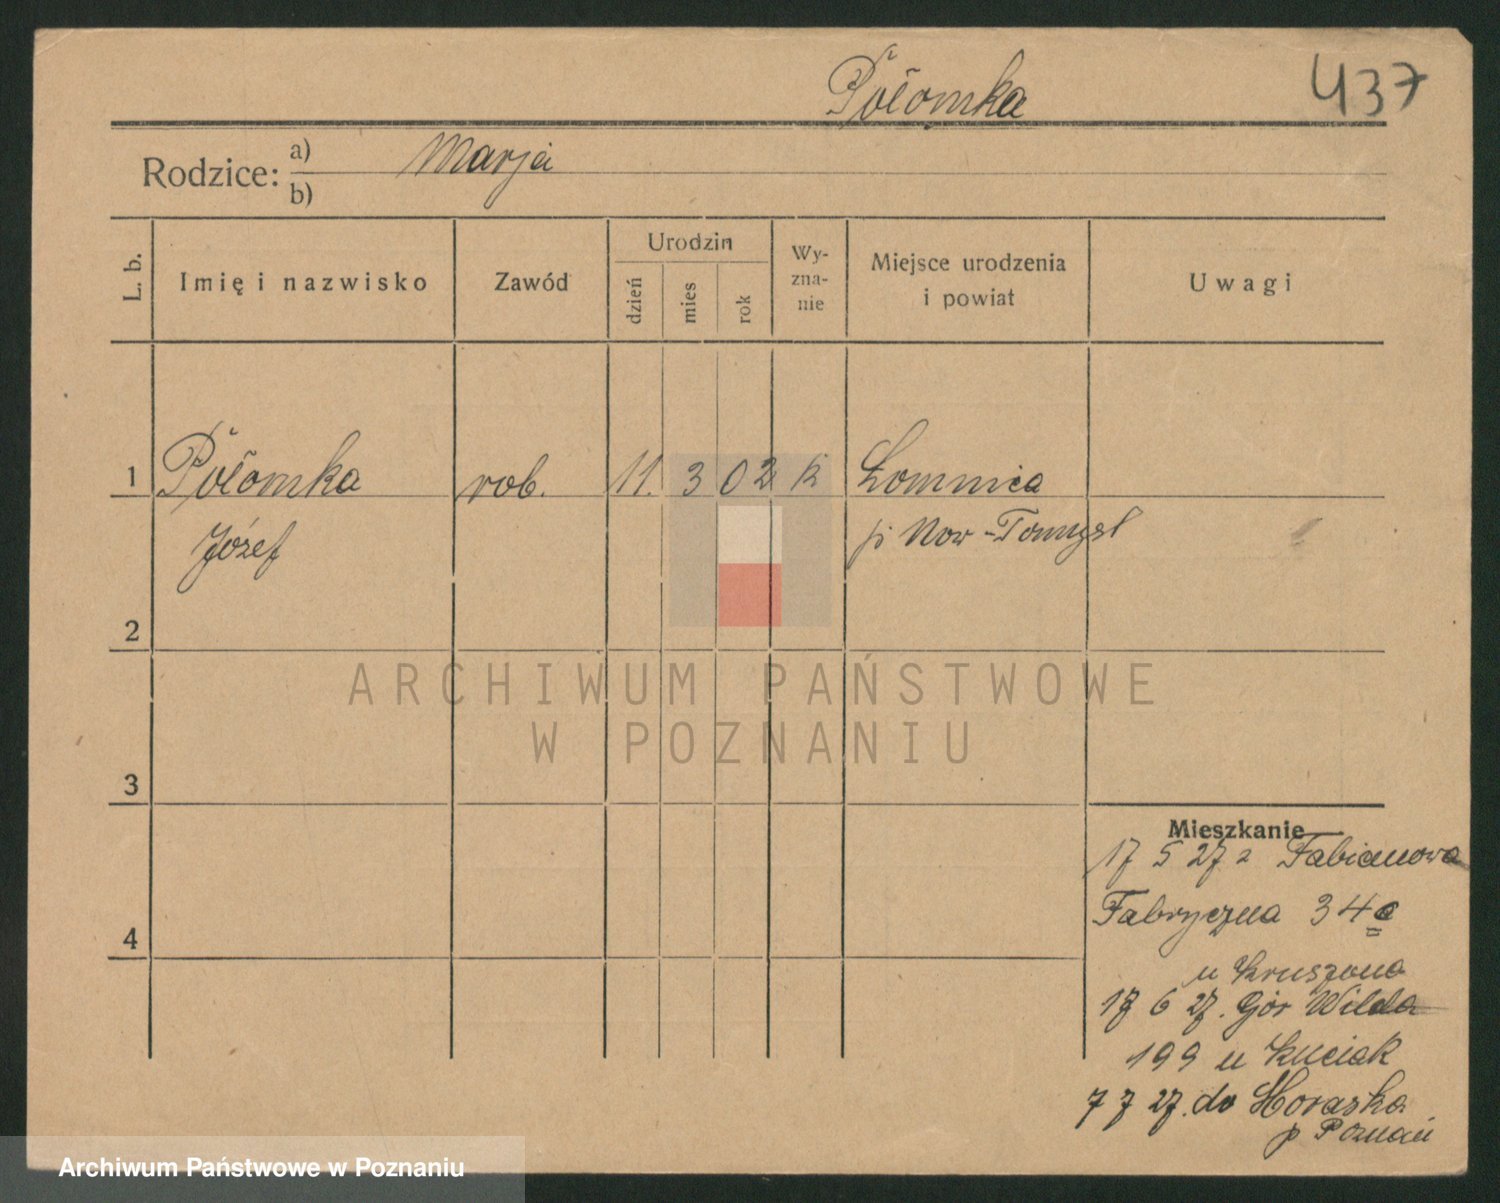 Połomka 437
Rodzice: a) Marja
b)
L. b. Imię i nazwisko Zawód Urodzin dzień mies rok Wy-zna-nie Miejsce urodzenia i powiat Uwagi
1 Połomka rob. 11. 3 02 k Łomnica
Józef p Now-Tomysl
2
ARCHIWUM PAŃSTWOWE
W POZNANIU
3
Mieszkanie
17 5 27 z Fabianowa
4 Fabryczna 34c
u Kruszona
17 6 27. Gór Wilda
199 u Kuciak
7 7 27. do Moraska
p Poznań
Archiwum Państwowe w Poznaniu